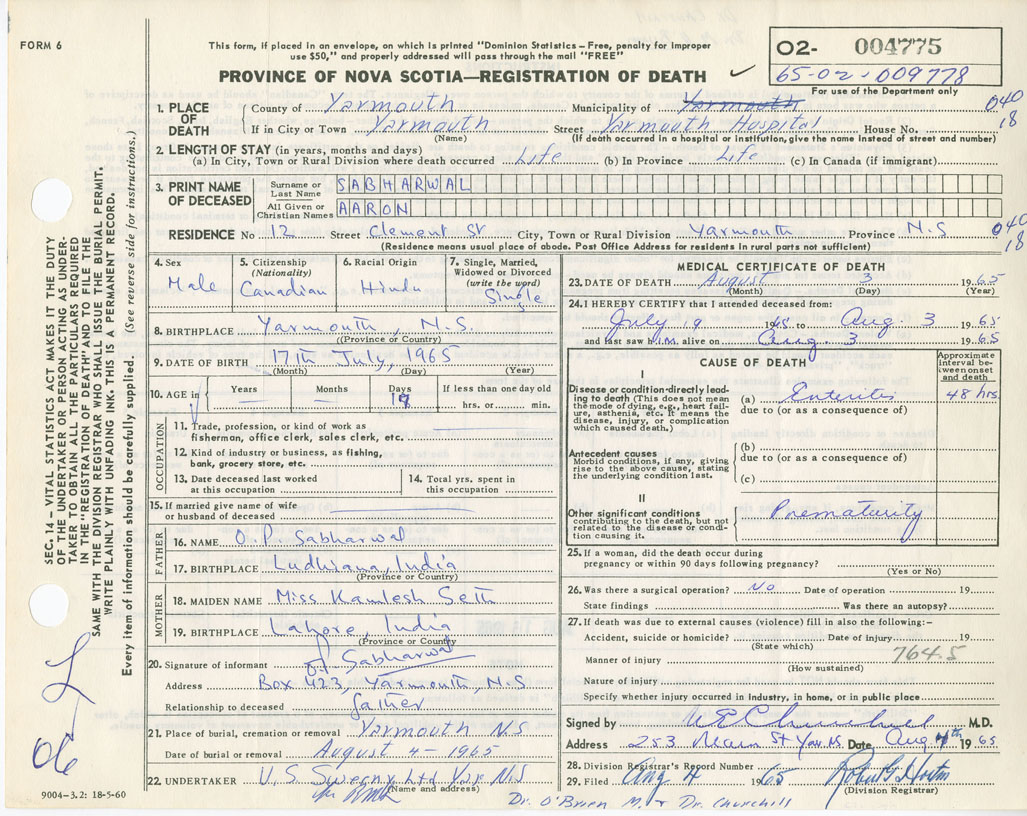 FORM 6
This form, if placed in an envelope, on which is printed "Dominion Statistics – Free, penalty for improper
use $50," and properly addressed will pass through the mail "FREE"
PROVINCE OF NOVA SCOTIA—REGISTRATION OF DEATH ✓
02- 004775
65-02-009778
For use of the Department only
1. PLACE OF DEATH
County of Yarmouth Municipality of Yarmouth 040
If in City or Town Yarmouth Street Yarmouth Hospital House No. 18
(Name) (If death occurred in a hospital or institution, give the name instead of street and number)
2. LENGTH OF STAY (in years, months and days)
(a) In City, Town or Rural Division where death occurred Life (b) In Province Life (c) In Canada (if immigrant)
3. PRINT NAME OF DECEASED
Surname or Last Name SABHARWAL
All Given or Christian Names AARON
RESIDENCE No 12 Street Clement St City, Town or Rural Division Yarmouth Province N.S 040 18
(Residence means usual place of abode. Post Office Address for residents in rural parts not sufficient)
4. Sex
Male
5. Citizenship
(Nationality)
Canadian
6. Racial Origin
Hindu
7. Single, Married,
Widowed or Divorced
(write the word)
Single
8. BIRTHPLACE Yarmouth, N.S.
(Province or Country)
9. DATE OF BIRTH 17th July, 1965
(Month) (Day) (Year)
10. AGE in
Years
Months
Days
If less than one day old
hrs. or min.
OCCUPATION
11. Trade, profession, or kind of work as
fisherman, office clerk, sales clerk, etc.
12. Kind of industry or business, as fishing,
bank, grocery store, etc.
13. Date deceased last worked
at this occupation
14. Total yrs. spent in
this occupation
15. If married give name of wife
or husband of deceased
FATHER
16. NAME O.P. Sabharwal
17. BIRTHPLACE Ludhiana, India
(Province or Country)
MOTHER
18. MAIDEN NAME Miss Kamlesh Seth
19. BIRTHPLACE Lahore, India
(Province or Country)
20. Signature of informant O.P. Sabharwal
Address Box 423, Yarmouth, N.S
Relationship to deceased father
21. Place of burial, cremation or removal Yarmouth N S
Date of burial or removal August 4 - 1965
22. UNDERTAKER U.S. Sweeny Ltd Yar. N.S
(Name and address)
MEDICAL CERTIFICATE OF DEATH
23. DATE OF DEATH August 3 1965
(Month) (Day) (Year)
24. I HEREBY CERTIFY that I attended deceased from:
July 19 to Aug. 3 1965
and last saw him alive on Aug. 3 1965
CAUSE OF DEATH
Approximate
interval be-
tween onset
and death
I
Disease or condition directly lead-
ing to death (This does not mean
the mode of dying, e.g., heart fail-
ure, asthenia, etc. It means the
disease, injury, or complication
which caused death.)
(a) Enteritis 48 hrs.
due to (or as a consequence of)
Antecedent causes
Morbid conditions, if any, giving
rise to the above cause, stating
the underlying condition last.
(b)
due to (or as a consequence of)
(c)
II
Other significant conditions
contributing to the death, but not
related to the disease or condi-
tion causing it.
Prematurity
25. If a woman, did the death occur during
pregnancy or within 90 days following pregnancy?
(Yes or No)
26. Was there a surgical operation? No Date of operation 19
State findings Was there an autopsy?
27. If death was due to external causes (violence) fill in also the following:-
Accident, suicide or homicide? Date of injury 19
(State which)
764.5
Manner of injury
(How sustained)
Nature of injury
Specify whether injury occurred in industry, in home, or in public place
Signed by W E Churchill M.D.
Address 253 Main St Yar. NS. Date Aug 4th 1965
28. Division Registrar's Record Number
29. Filed Aug 4 1965
(Division Registrar)
Dr. O'Brien M. & Dr. Churchill
9004-3.2: 18-5-60
SEC. 14 – VITAL STATISTICS ACT MAKES IT THE DUTY
OF THE UNDERTAKER OR PERSON ACTING AS UNDER-
TAKER TO OBTAIN ALL THE PARTICULARS REQUIRED
IN THE "REGISTRATION OF DEATH" AND TO FILE THE
SAME WITH THE DIVISION REGISTRAR WHO SHALL ISSUE THE BURIAL PERMIT.
WRITE PLAINLY WITH UNFADING INK. THIS IS A PERMANENT RECORD.
Every item of information should be carefully supplied. (See reverse side for instructions.)
06